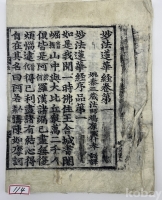 妙法蓮華經卷第一
妙法蓮華經序品第一
如是我聞一時佛住王舍城耆闍
崛山中與大比丘衆萬二千人
俱皆是阿羅漢諸漏已盡無復
煩惱逮得己利盡諸有結心得
自在其名曰阿若憍陳如摩訶
114
kobay